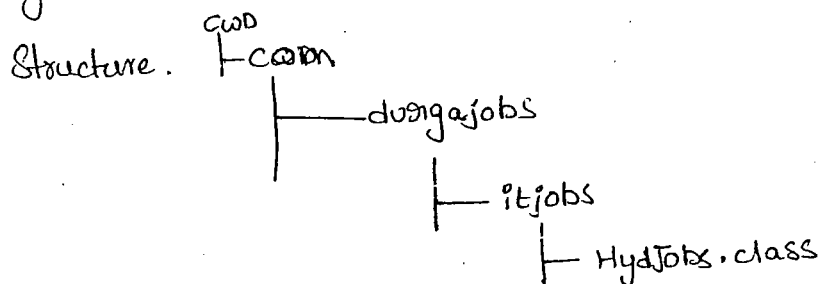 CWD
Structure. com
durgajobs
itjobs
HydJobs.class